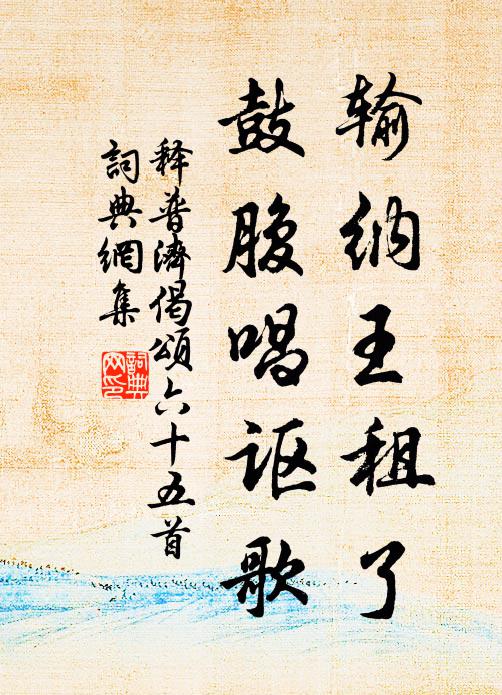 输纳王租了
鼓腹唱讴歌
释普濟偈頌六十五首
詞典網集
詞典网印